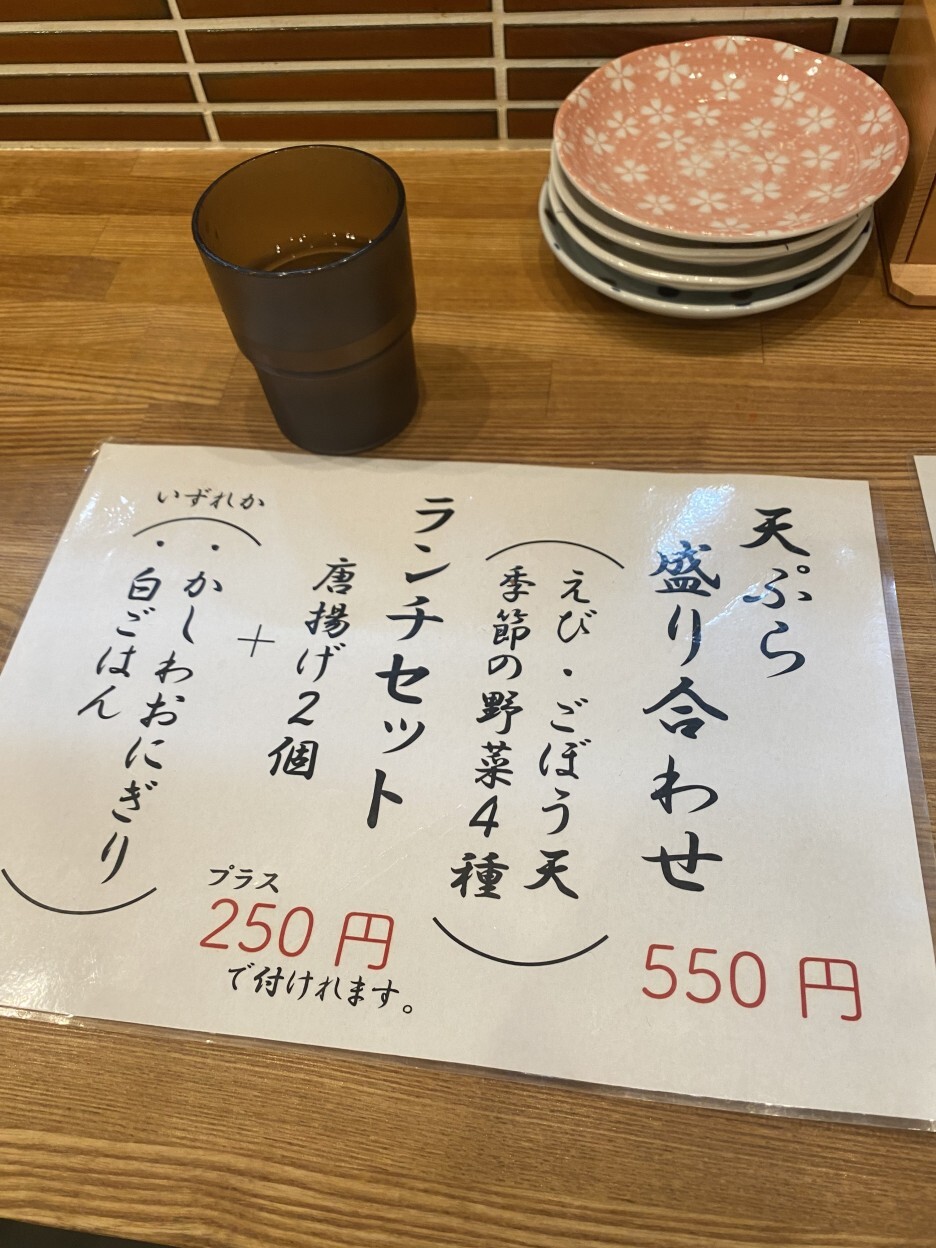 天ぷら
盛り合わせ
えび・ごぼう天
季節の野菜4種
550円
ランチセット
唐揚げ2個
+
いずれか
・かしわおにぎり
・白ごはん
プラス
250円
で付けれます。